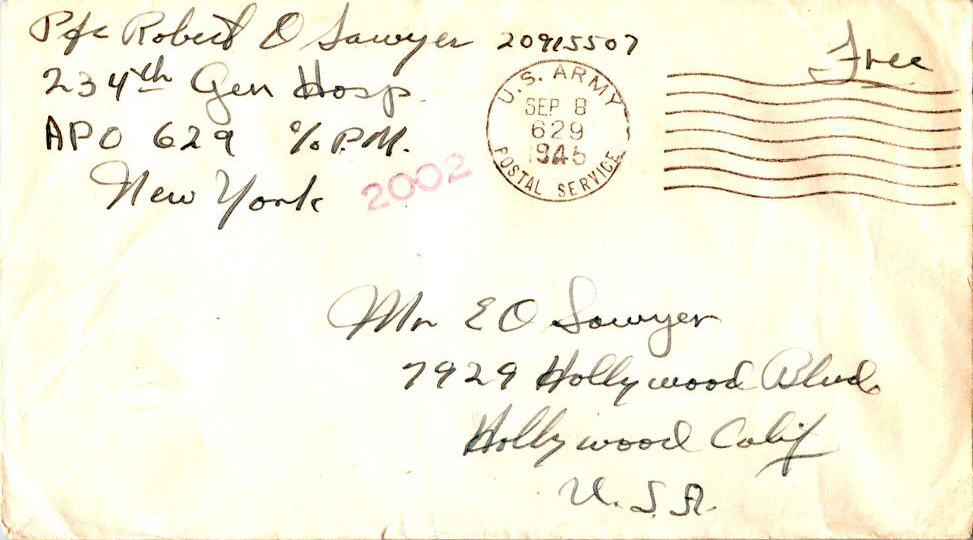 Pfc Robert O Sawyer 20915507
Free
234th Gen Hosp.
APO 629 c/o P.M.
New York
2002
U.S. ARMY
SEP 8
629
1945
POSTAL SERVICE
Mr E O Sawyer
7929 Hollywood Blvd.
Hollywood Calif
U.S.A.